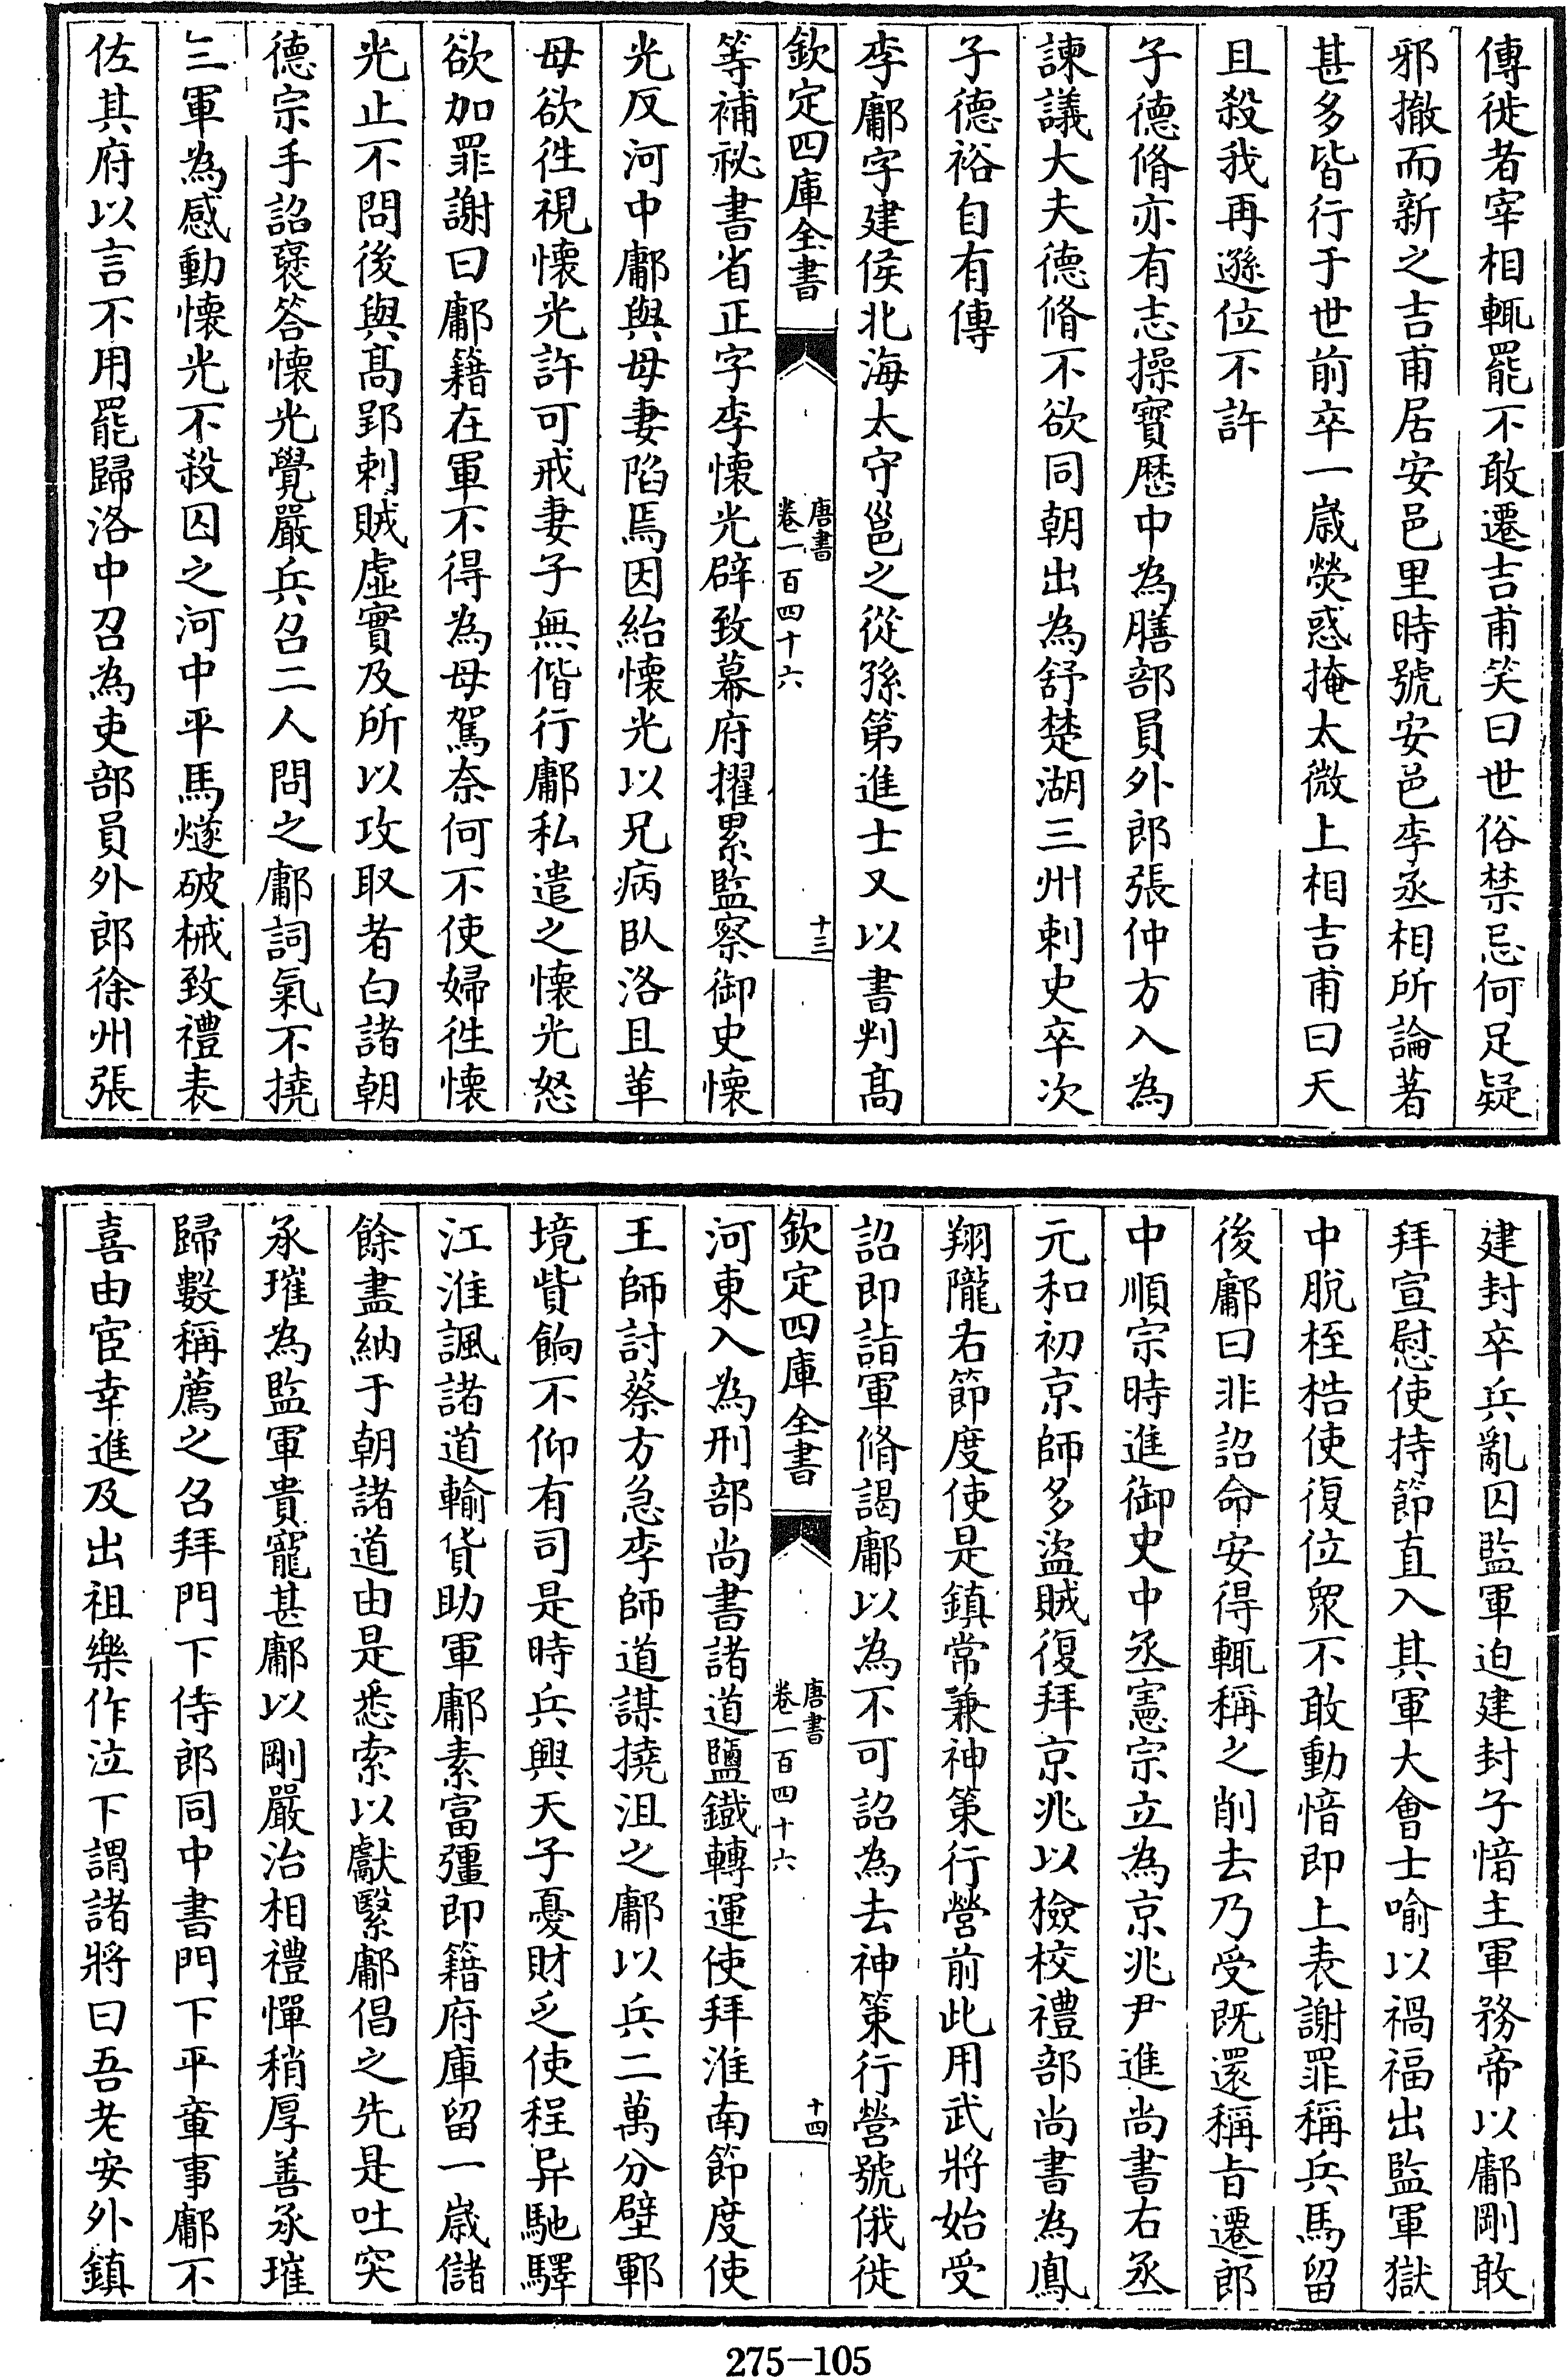 傳徙者宰相輒罷不敢遷吉甫笑曰世俗禁忌何足疑
邪撤而新之吉甫居安邑里時號安邑李丞相所論著
甚多皆行于世前卒一嵗熒惑掩太微上相吉甫曰天
且殺我再遜位不許
子德脩亦有志操寳厯中為膳部員外郎張仲方入為
諫議大夫德脩不欲同朝出為舒楚湖三州刺史卒次
子德裕自有傳
李鄘字建侯北海太守邕之從孫第進士又以書判髙
欽定四庫全書
唐書
卷一百四十六
十三
等補祕書省正字李懐光辟致幕府擢累監察御史懐
光反河中鄘與母妻陷焉因紿懐光以兄病臥洛且革
母欲徃視懐光許可戒妻子無偕行鄘私遣之懐光怒
欲加罪謝曰鄘籍在軍不得為母駕奈何不使婦徃懐
光止不問後與髙郢刺賊虛實及所以攻取者白諸朝
德宗手詔襃答懐光覺嚴兵召二人問之鄘詞氣不撓
三軍為感動懐光不殺囚之河中平馬燧破械致禮表
佐其府以言不用罷歸洛中召為吏部員外郎徐州張
建封卒兵亂囚監軍迫建封子愔主軍務帝以鄘剛敢
拜宣慰使持節直入其軍大會士喻以禍福出監軍獄
中脫桎梏使復位衆不敢動愔即上表謝罪稱兵馬留
後鄘曰非詔命安得輒稱之削去乃受既還稱旨遷郎
中順宗時進御史中丞憲宗立為京兆尹進尚書右丞
元和初京師多盜賊復拜京兆以檢校禮部尚書為鳳
翔隴右節度使是鎮常兼神策行營前此用武將始受
詔即詣軍脩謁鄘以為不可詔為去神策行營號俄徙
欽定四庫全書
唐書
卷一百四十六
十四
河東入為刑部尚書諸道鹽鐵轉運使拜淮南節度使
王師討蔡方急李師道謀撓沮之鄘以兵二萬分壁鄆
境貲餉不仰有司是時兵興天子憂財乏使程异馳驛
江淮諷諸道輸貨助軍鄘素富彊即籍府庫留一嵗儲
餘盡納于朝諸道由是悉索以獻繄鄘倡之先是吐突
承璀為監軍貴寵甚鄘以剛嚴治相禮憚稍厚善承璀
歸數稱薦之召拜門下侍郎同中書門下平章事鄘不
喜由宦幸進及出祖樂作泣下謂諸將曰吾老安外鎮
275-105